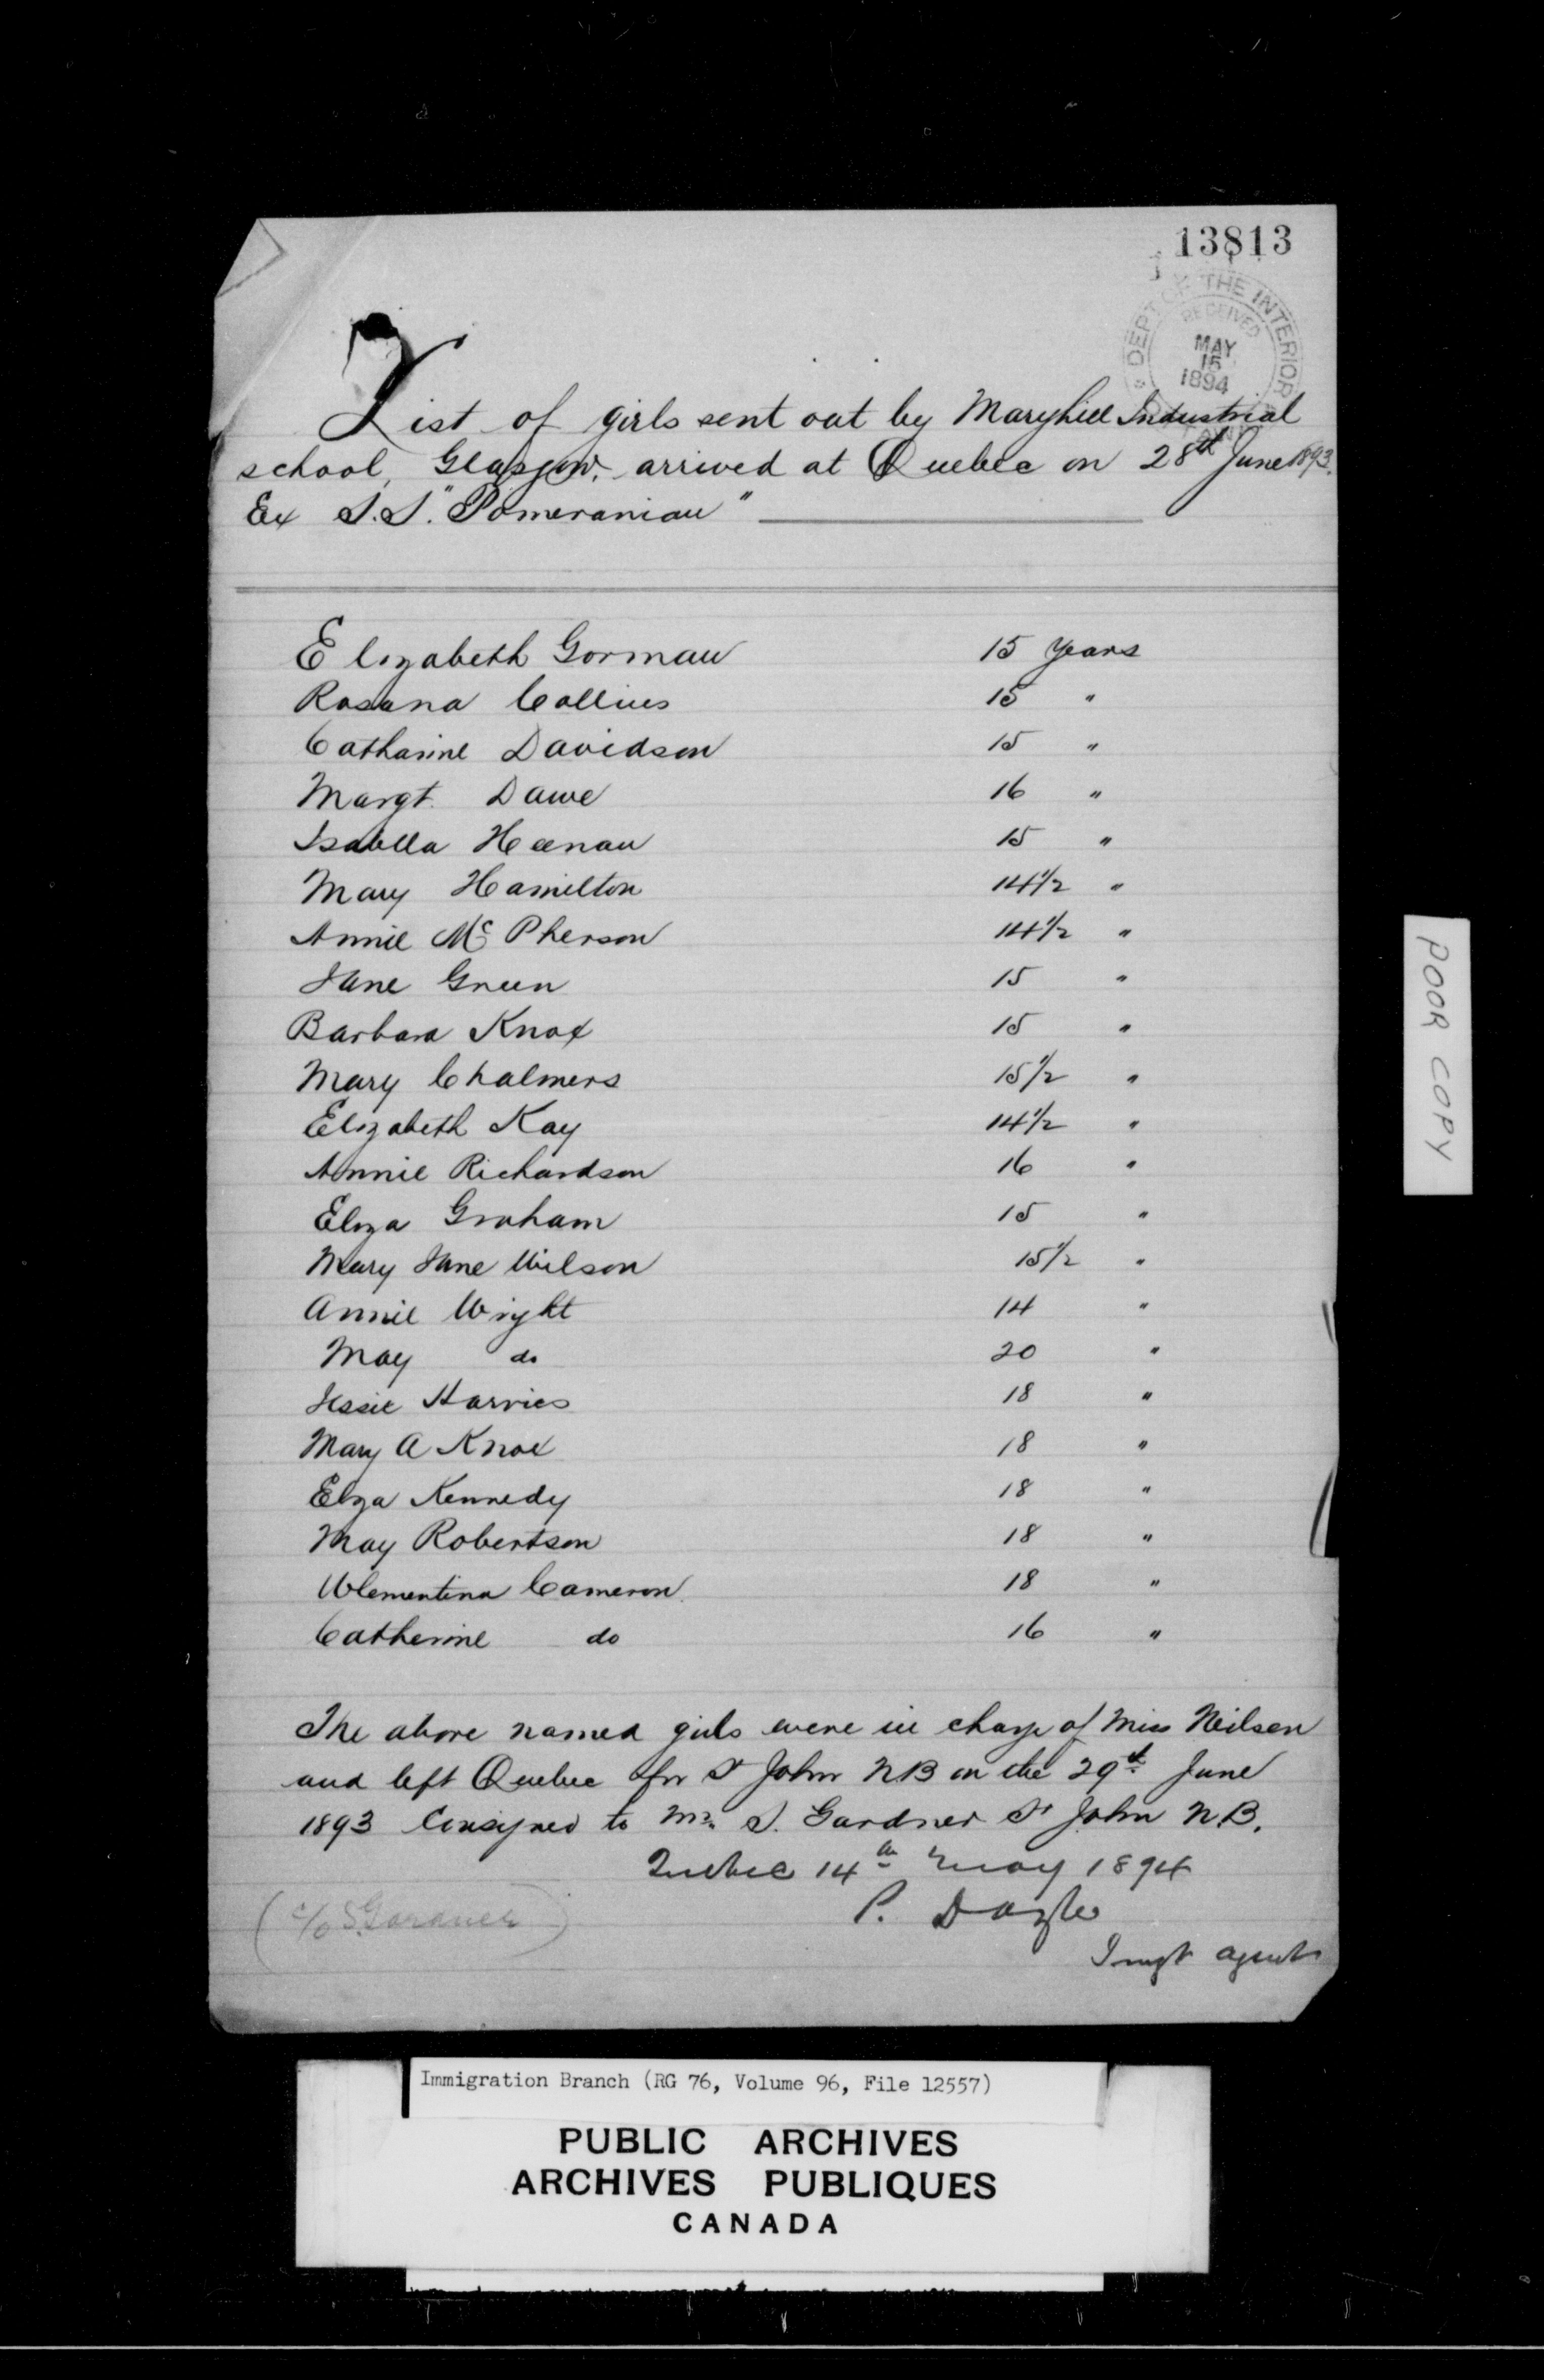 13813
DEPT OF THE INTERIOR
RECEIVED
MAY
15
1894
List of girls sent out by Maryhill Industrial
school, Glasgow. arrived at Quebec on 28th June 1893.
Ex S.S. "Pomeranian"
Elizabeth Gorman 15 years
Rosana Collins 15 "
Catharine Davidson 15 "
Margt. Dawe 16 "
Isabella Heenan 15 "
Mary Hamilton 14 1/2 "
Annie Mc Pherson 14 1/2 "
Jane Green 15 "
Barbara Knox 15 "
Mary Chalmers 15 1/2 "
Elizabeth Kay 14 1/2 "
Annie Richardson 16 "
Eliza Graham 15 "
Mary Jane Wilson 15 1/2 "
Annie Wright 14 "
May do 20 "
Jessie Harvies 18 "
Mary A Knox 18 "
Eliza Kennedy 18 "
May Robertson 18 "
Wlementina Cameron 18 "
Catherine do 16 "
The above named girls were in charge of Miss Neilsen
and left Quebec for St John NB on the 29th June
1893 Consigned to Mr. S. Gardner St John N.B.
Quebec 14th May 1894
P. Doyle
(c/o S. Gardner)
Imgt agent
POOR COPY
Immigration Branch (RG 76, Volume 96, File 12557)
PUBLIC ARCHIVES
ARCHIVES PUBLIQUES
CANADA